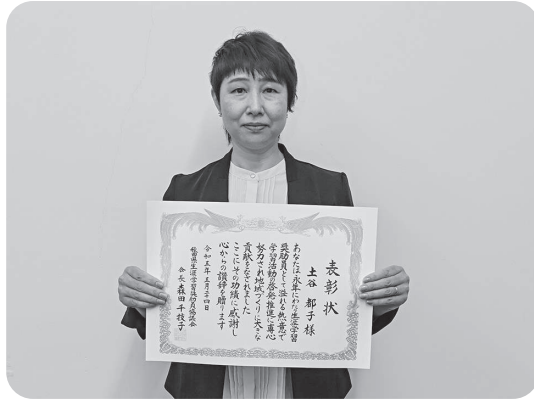 表彰状
土谷 都子 様
あなたは永年にわたり生涯学習
奨励員として溢れる熱意で
学習活動の啓発推進に専心
努力され地域づくりに大きな
貢献をなされました
ここにその功績に感謝し
心からの讃辞を贈ります
令和五年五月二十四日
会長 森田 千技子